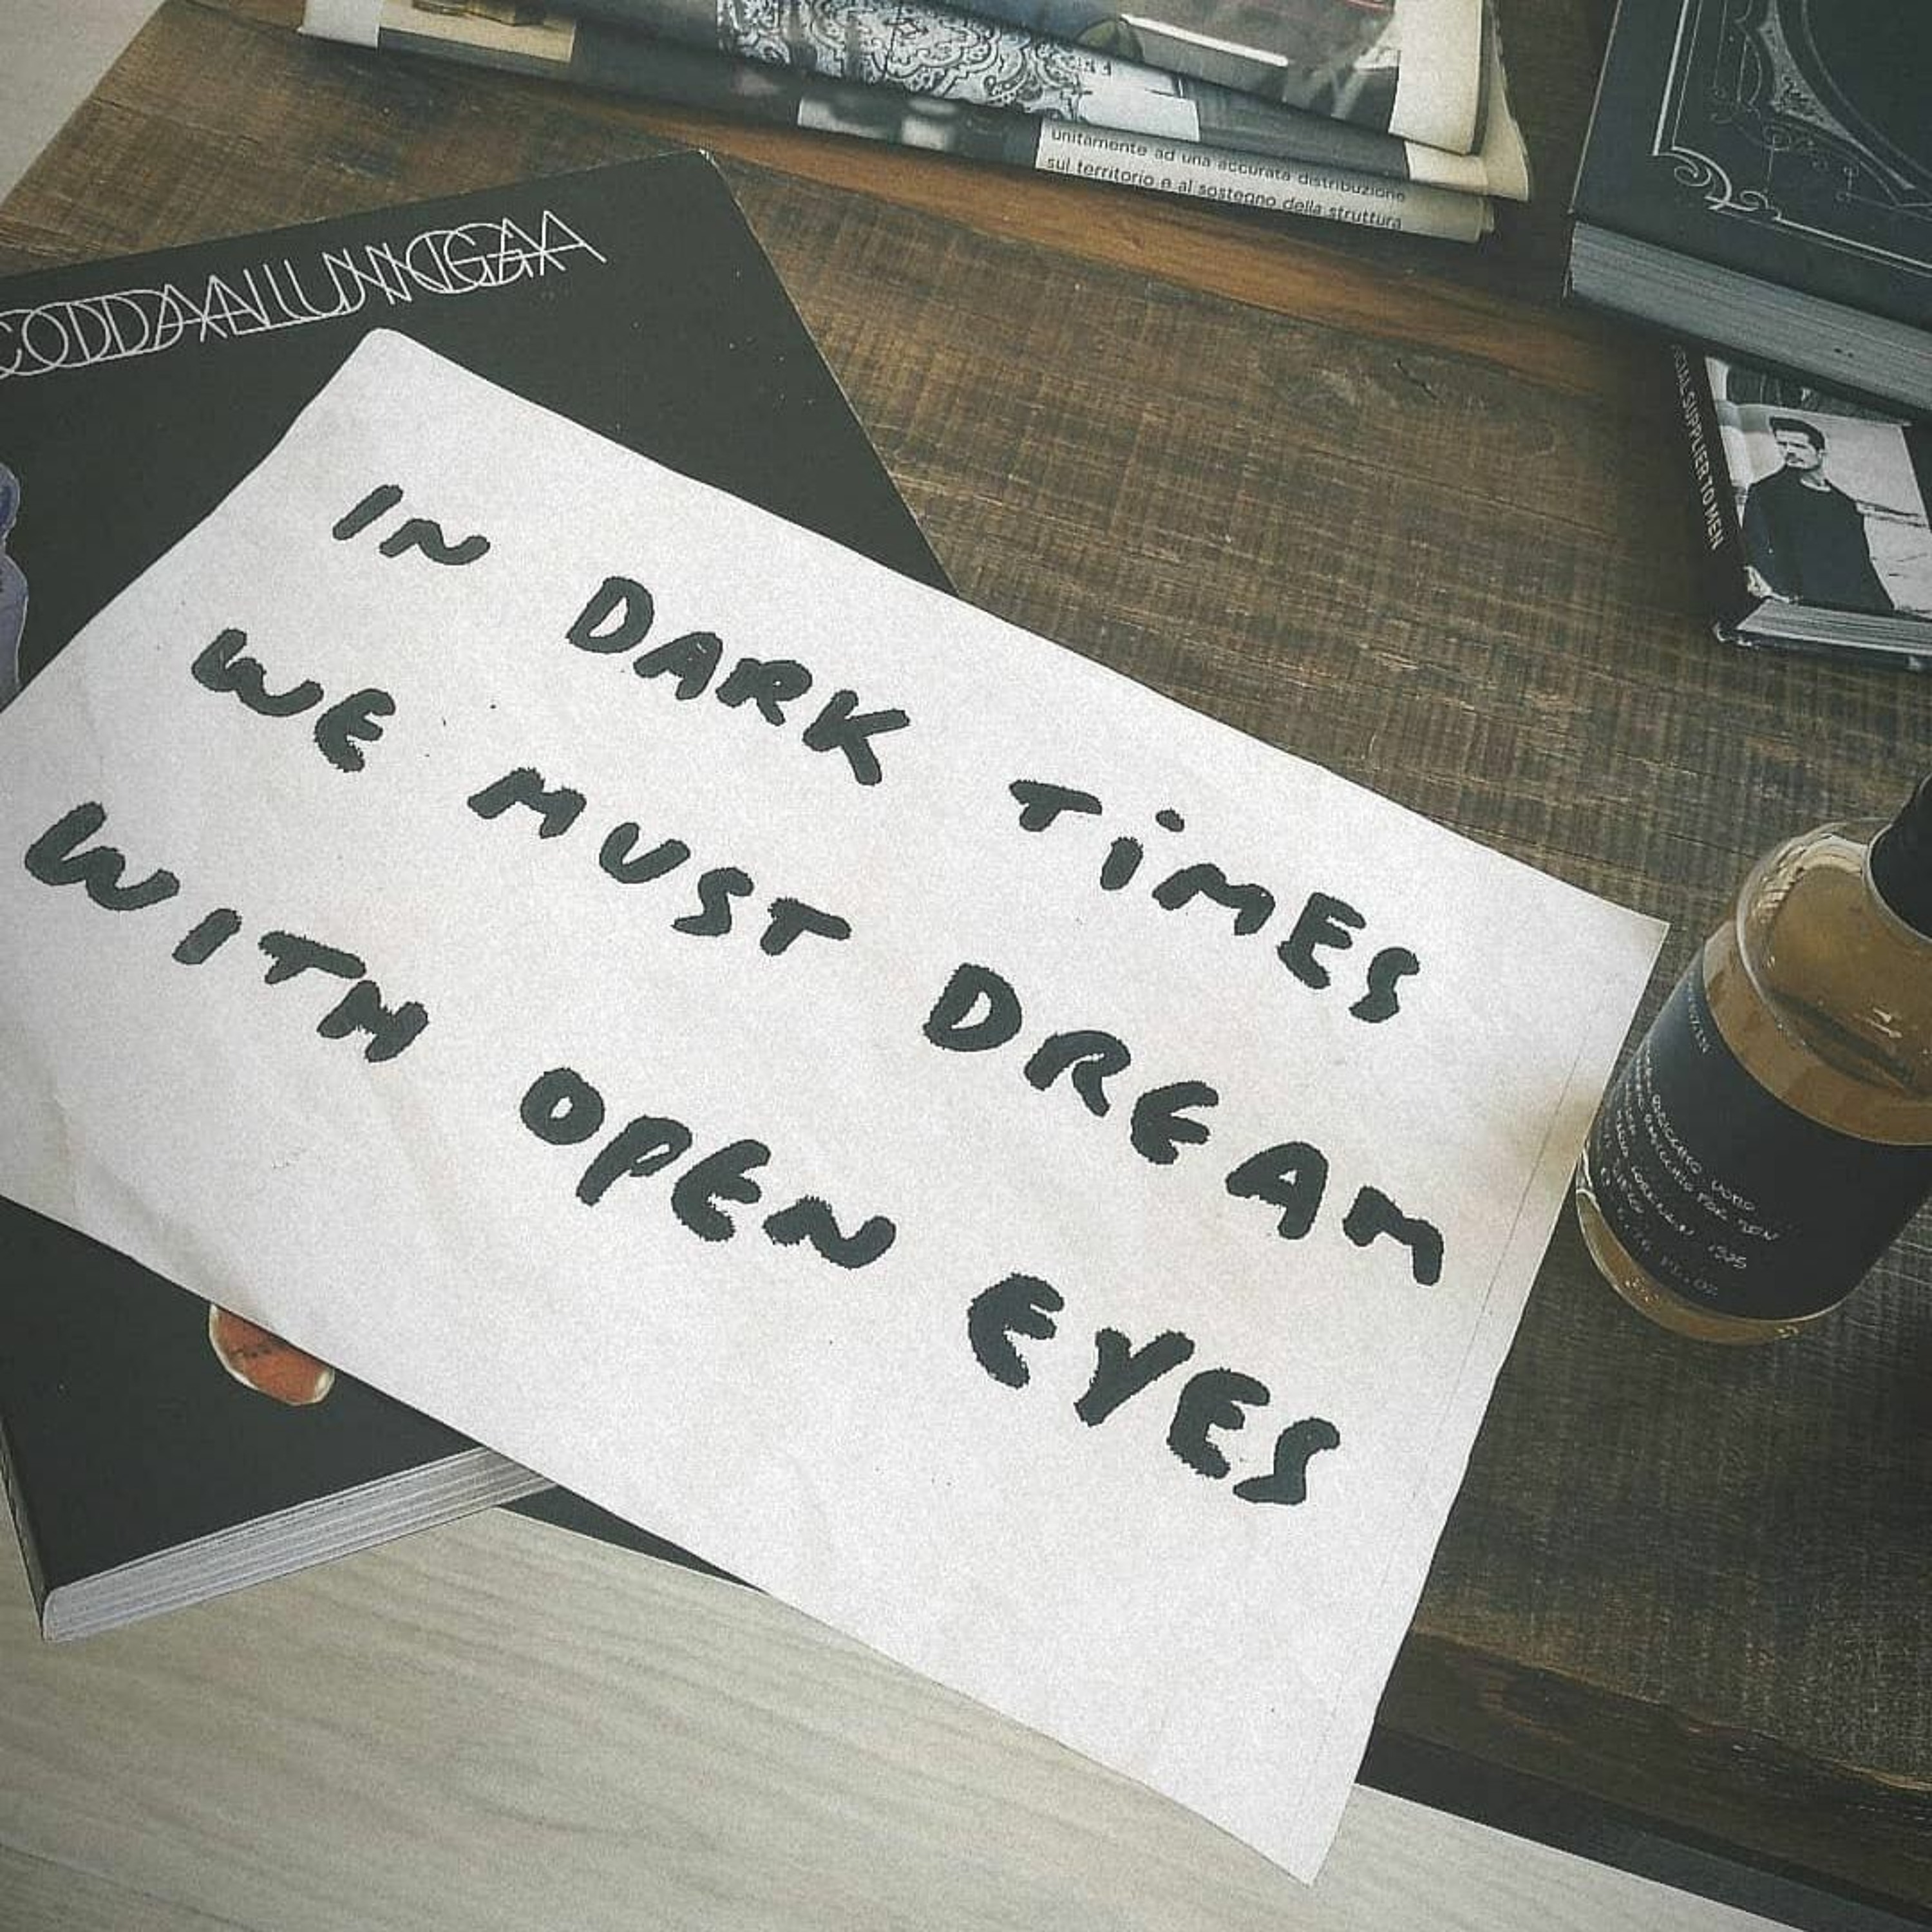 unitamente ad una accurata distribuzione
sul territorio e al sostegno della struttura
SUPPLIER TO MEN
IN DARK TiMES
WE MUST DREAM
WITH OPEN EYES